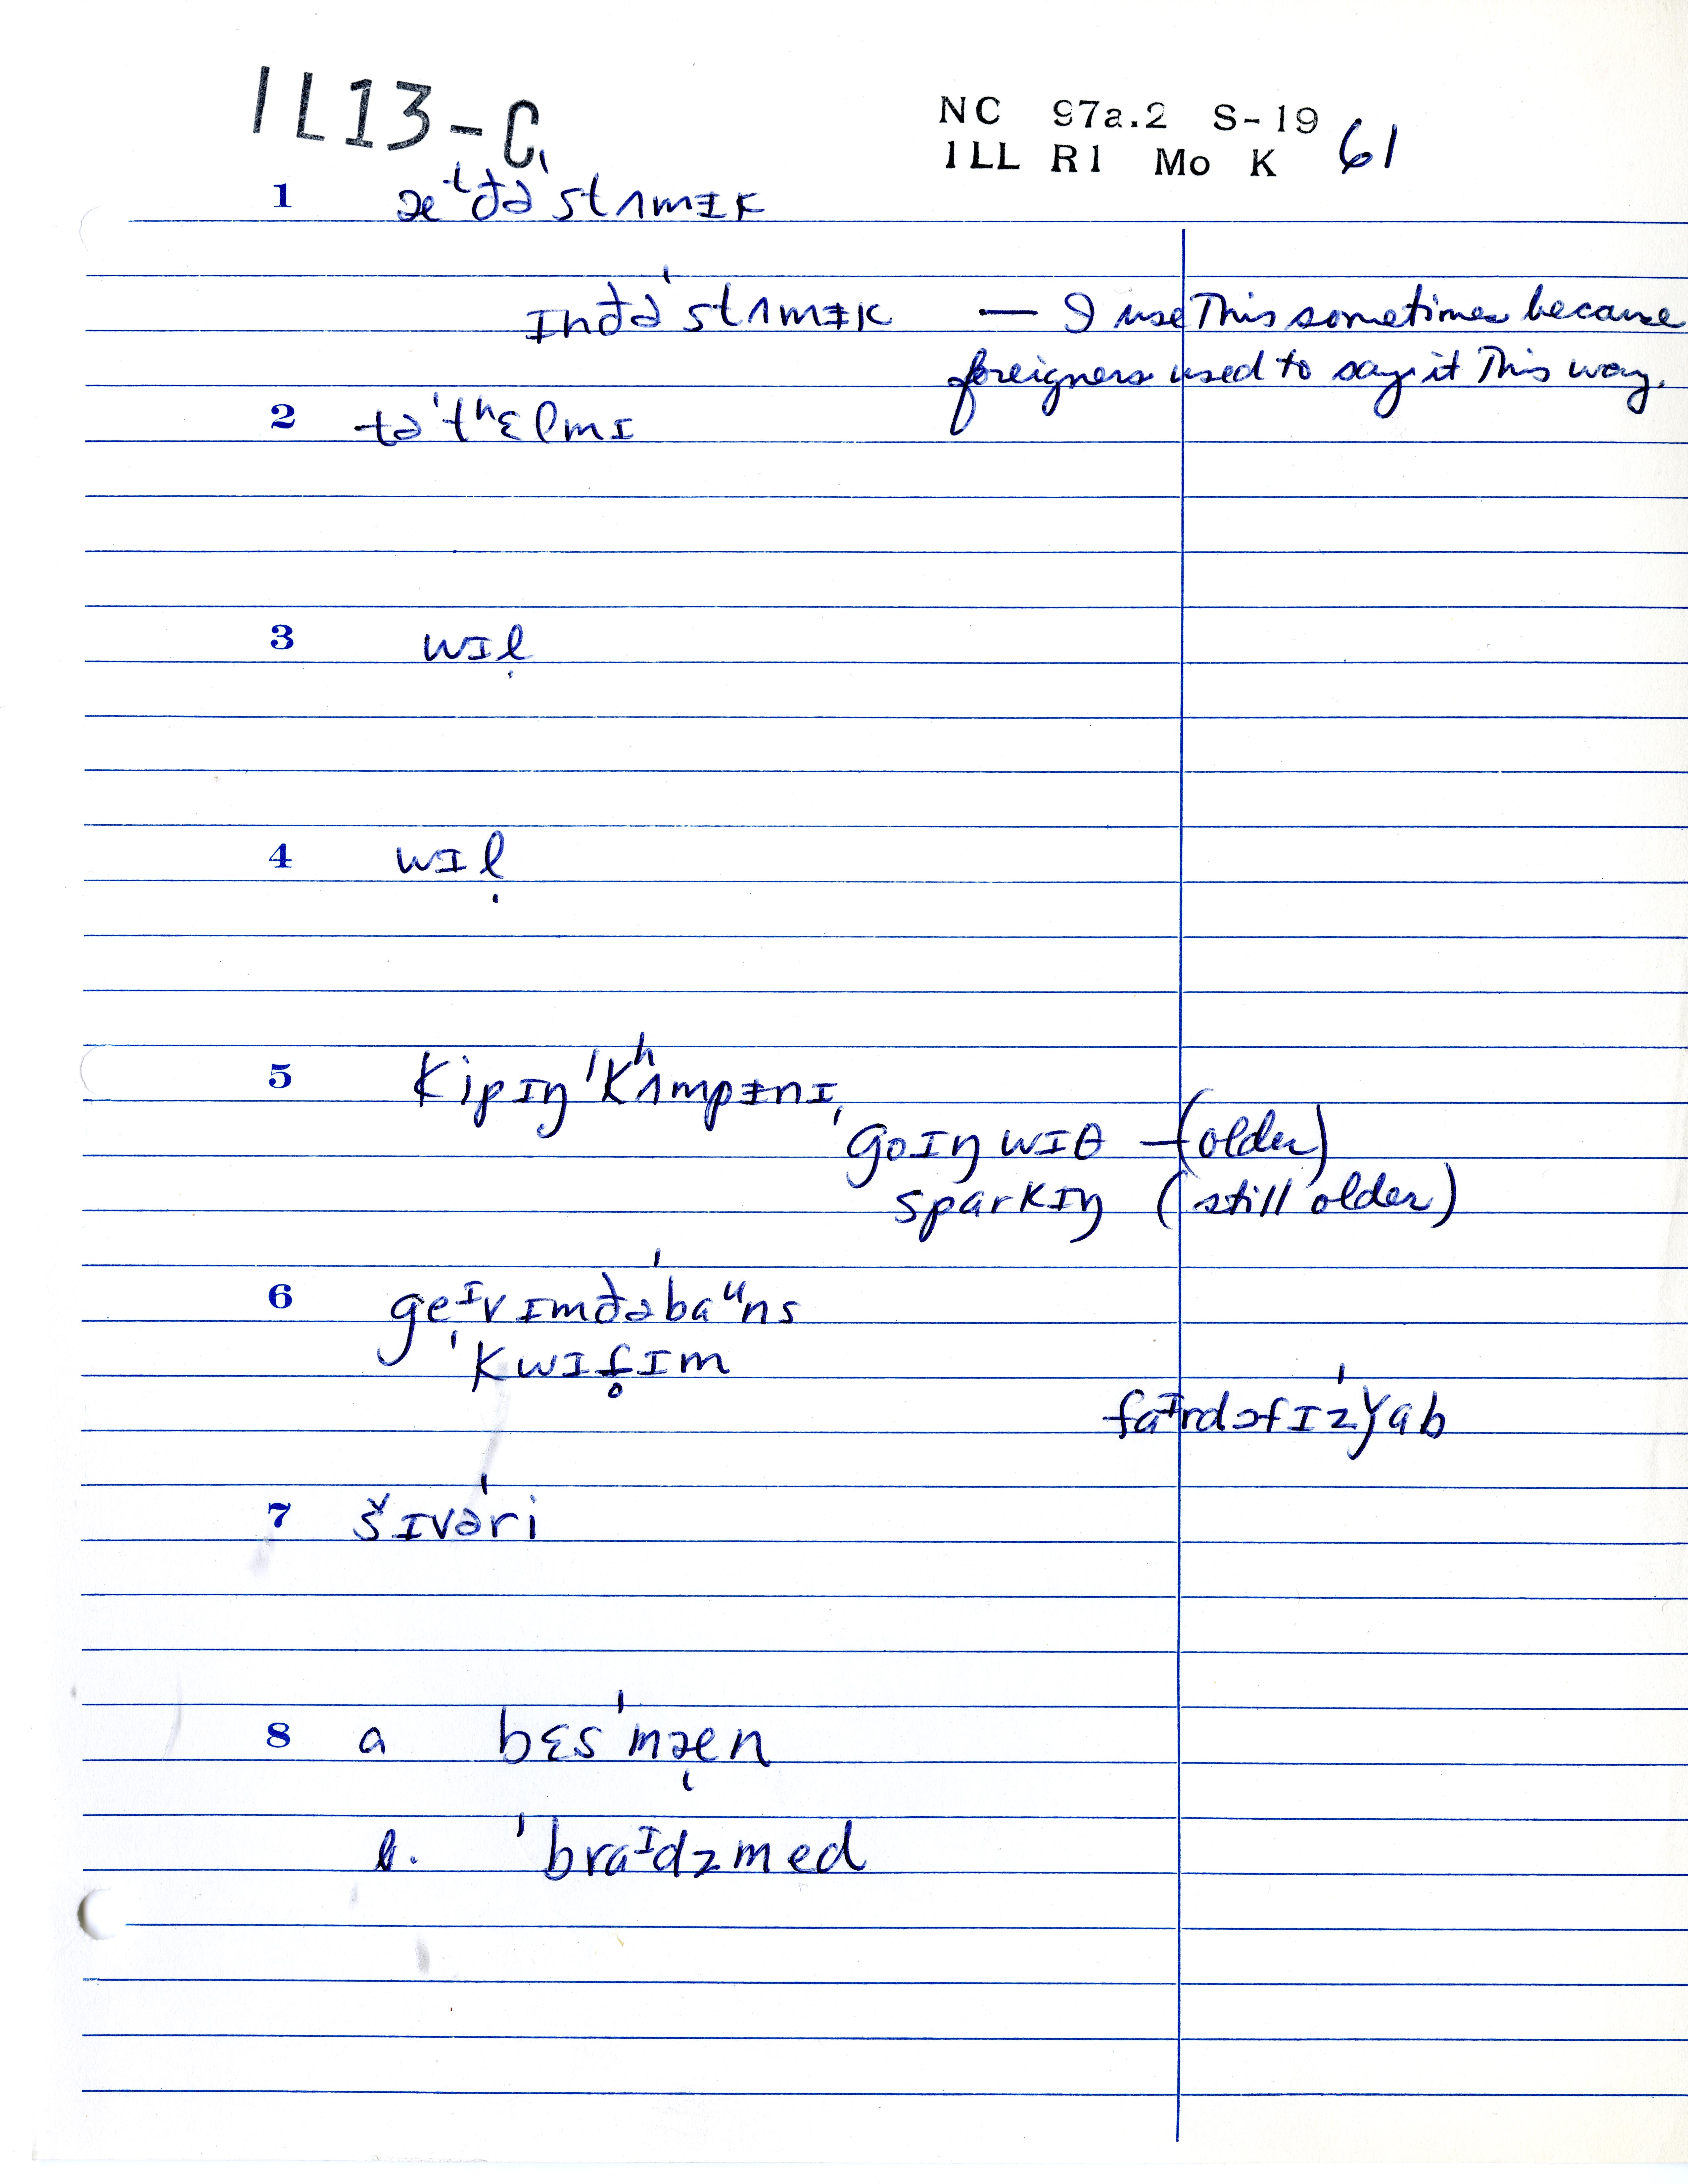 IL13-C
NC 97a.2 S-19 61
ILL R1 Mo K
1 æᵗðə'stʌmɨk
ɪnðə'stʌmɨk — I use This sometimes because
foreigners used to say it This way.
2 tə'tʰɛlmɪ
3 wɪḷ
4 wɪḷ
5 kipɪŋ 'kʰʌmpɨnɪ,
'goɪŋ wɪθ — (older)
sparkɪŋ (still older)
6 geᶦvɪmðə'baᵘns
'kwɪf̥ɪm
faᶦrdɔfɪz'ǰab
7 šɪvə'ri
8 a bɛs'mæ̩n
b. 'braᶦdzmed